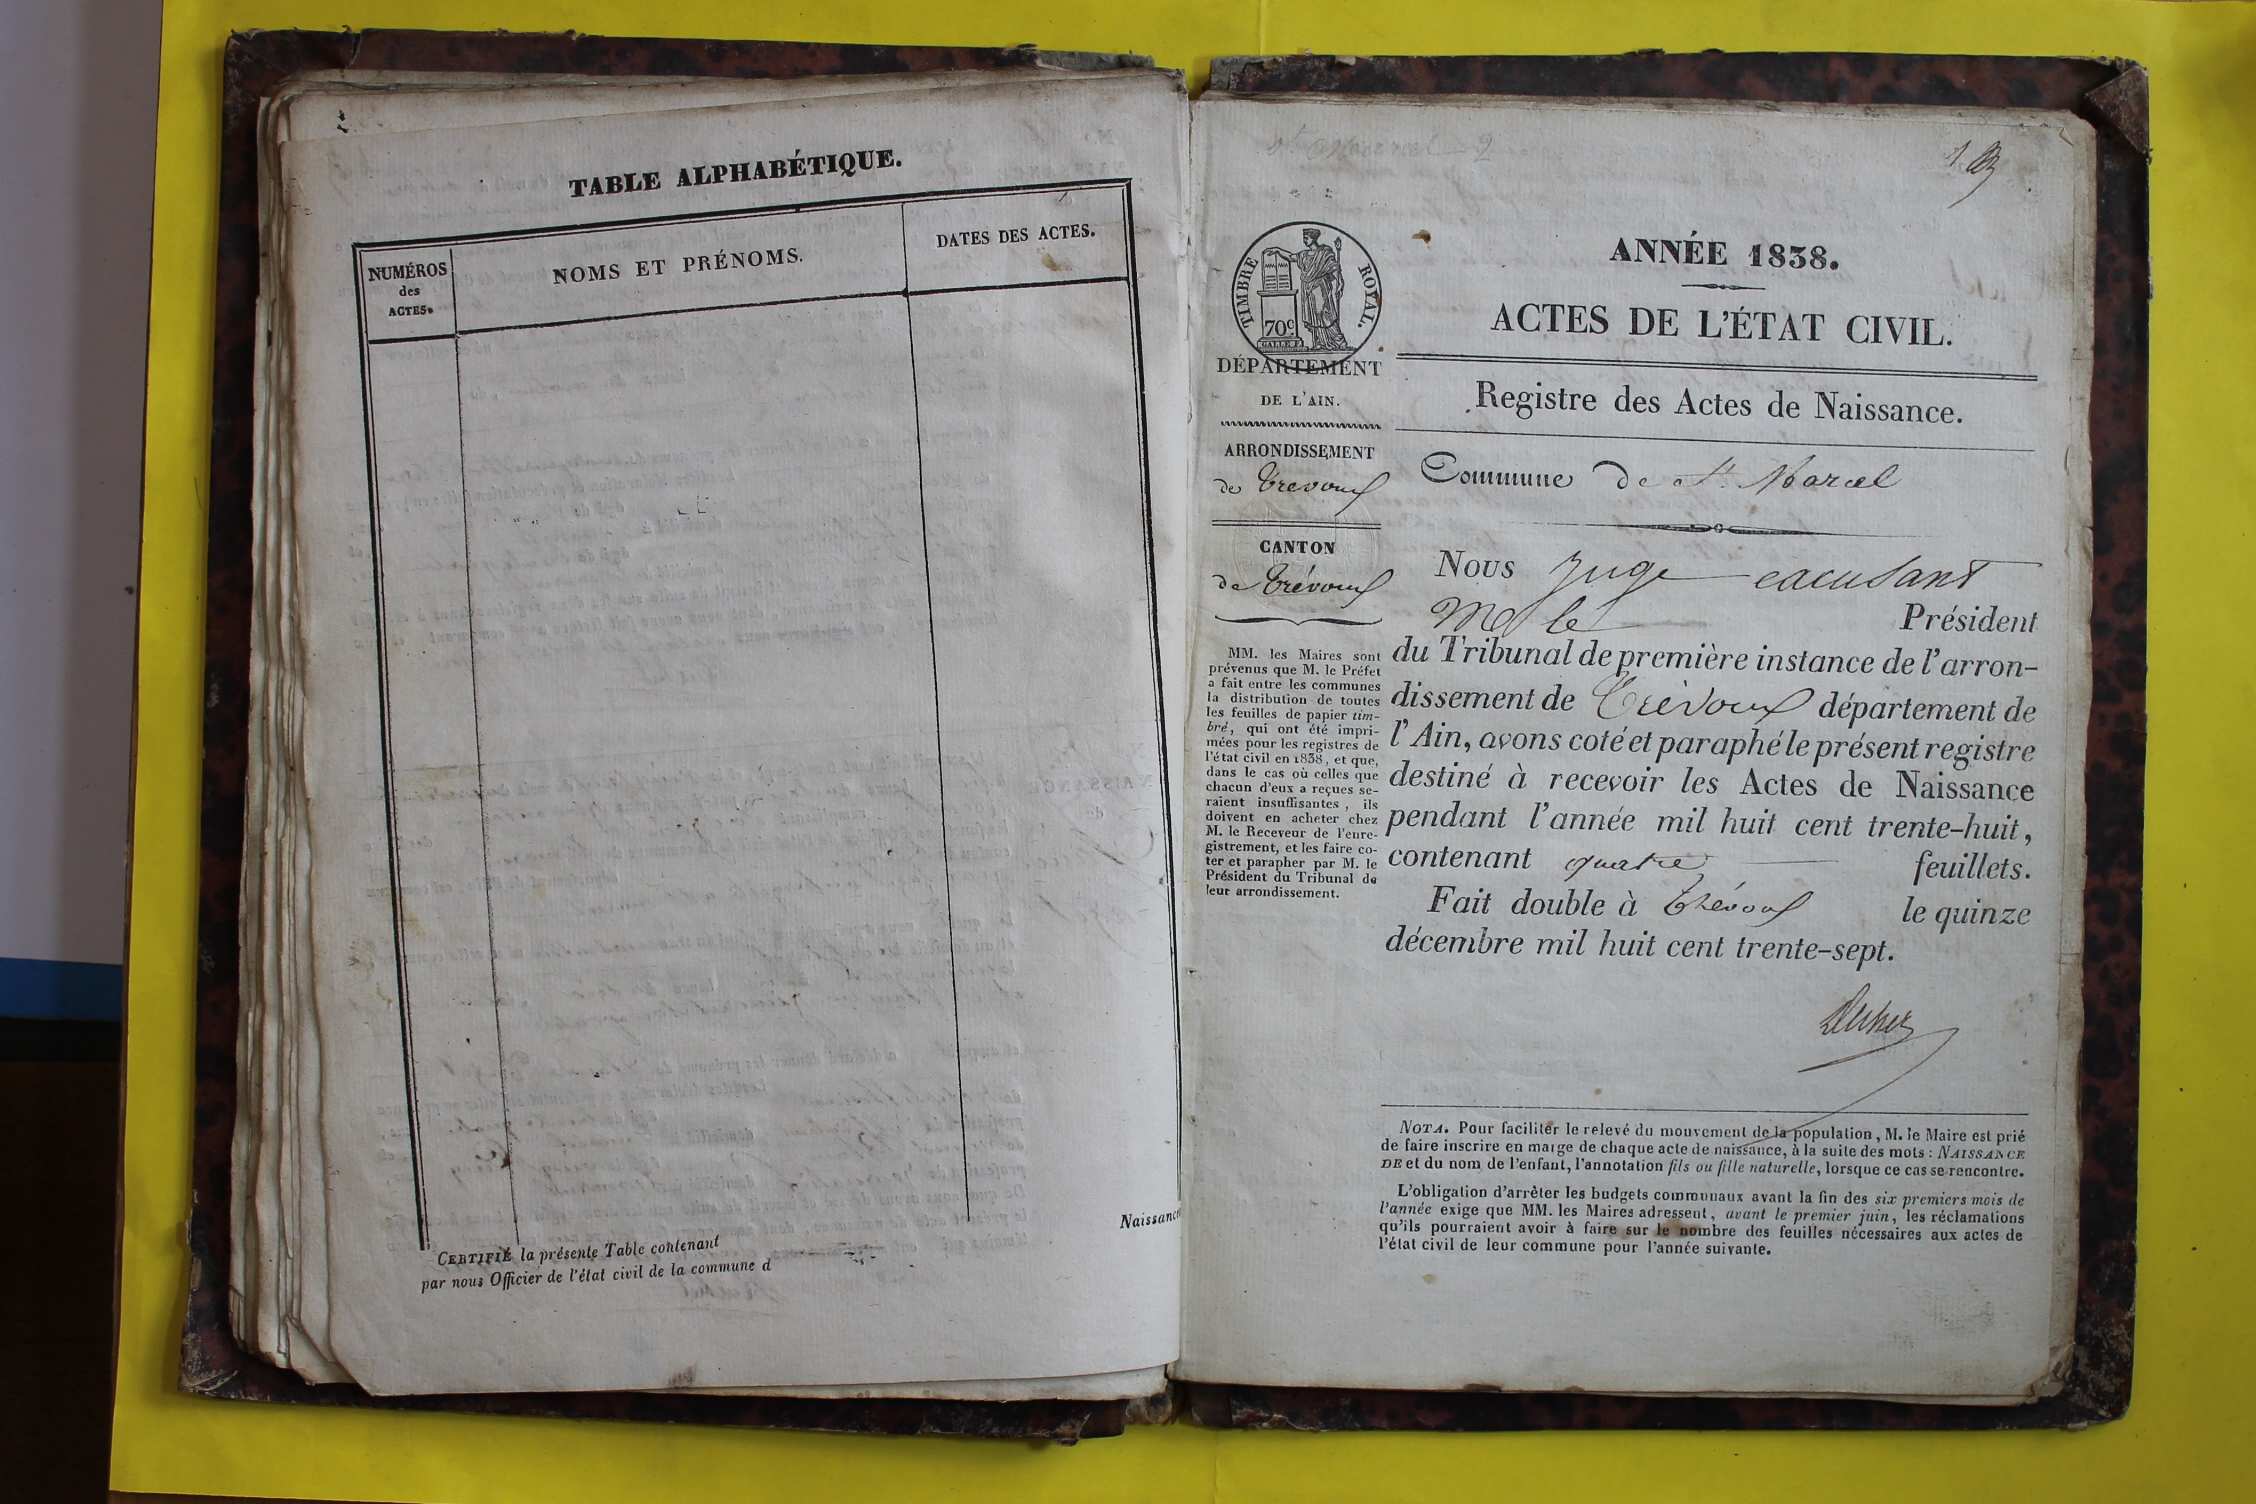 TABLE ALPHABÉTIQUE.
NUMÉROS
des
ACTES.
NOMS ET PRÉNOMS.
DATES DES ACTES.
CERTIFIÉ la présente Table contenant
par nous Officier de l'état civil de la commune d
Naissance
St Marcel 2
1.
TIMBRE ROYAL.
70c
DÉPARTEMENT
DE L'AIN.
ARRONDISSEMENT
de Trévoux
CANTON
de Trévoux
MM. les Maires sont
prévenus que M. le Préfet
a fait entre les communes
la distribution de toutes
les feuilles de papier tim-
bré, qui ont été impri-
mées pour les registres de
l'état civil en 1838, et que,
dans le cas où celles que
chacun d'eux a reçues se-
raient insuffisantes, ils
doivent en acheter chez
M. le Receveur de l'enre-
gistrement, et les faire co-
ter et parapher par M. le
Président du Tribunal de
leur arrondissement.
ANNÉE 1838.
ACTES DE L'ÉTAT CIVIL.
Registre des Actes de Naissance.
Commune De St. Marcel
Nous Juge
M le Président
du Tribunal de première instance de l'arron-
dissement de Trévoux département de
l'Ain, avons coté et paraphé le présent registre
destiné à recevoir les Actes de Naissance
pendant l'année mil huit cent trente-huit,
contenant quatre feuillets.
Fait double à Trévoux le quinze
décembre mil huit cent trente-sept.
NOTA. Pour faciliter le relevé du mouvement de la population, M. le Maire est prié
de faire inscrire en marge de chaque acte de naissance, à la suite des mots : NAISSANCE
DE et du nom de l'enfant, l'annotation fils ou fille naturelle, lorsque ce cas se rencontre.
L'obligation d'arrêter les budgets communaux avant la fin des six premiers mois de
l'année exige que MM. les Maires adressent, avant le premier juin, les réclamations
qu'ils pourraient avoir à faire sur le nombre des feuilles nécessaires aux actes de
l'état civil de leur commune pour l'année suivante.